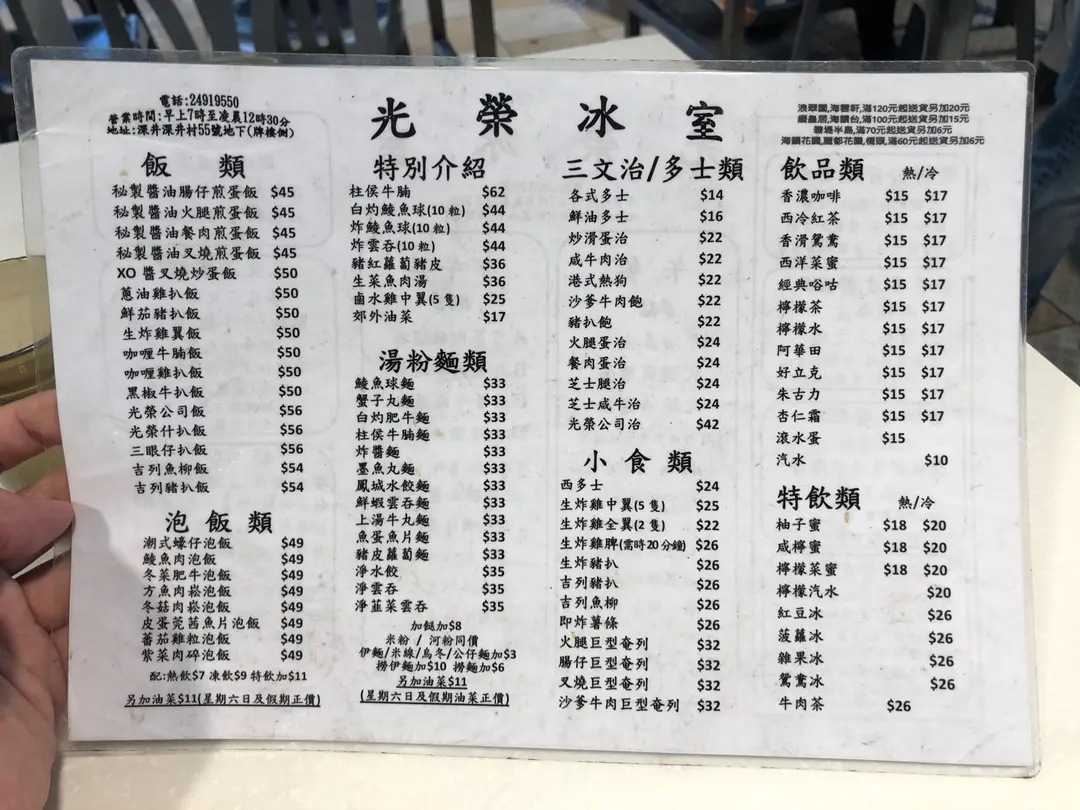 電話:24919550
營業時間:早上7時至凌晨12時30分
地址:深井深井村55號地下(牌樓側)
光榮冰室
浪翠園,海雲軒,滿120元起送貨另加20元
縉皇居,海韻台,滿100元起送貨另加15元
碧堤半島,滿70元起送貨另加8元
海韻花園,麗都花園,橋頭,滿60元起送貨另加6元
飯 類
秘製醬油腸仔煎蛋飯 $45
秘製醬油火腿煎蛋飯 $45
秘製醬油餐肉煎蛋飯 $45
秘製醬油叉燒煎蛋飯 $45
XO 醬叉燒炒蛋飯 $50
蔥油雞扒飯 $50
鮮茄豬扒飯 $50
生炸雞翼飯 $50
咖喱牛腩飯 $50
咖喱雞扒飯 $50
黑椒牛扒飯 $50
光榮公司飯 $56
光榮什扒飯 $56
三眼仔扒飯 $56
吉列魚柳飯 $54
吉列豬扒飯 $54
泡 飯 類
潮式蠔仔泡飯 $49
鯪魚肉泡飯 $49
冬菜肥牛泡飯 $49
方魚肉崧泡飯 $49
冬菇肉崧泡飯 $49
皮蛋芫茜魚片泡飯 $49
蕃茄雞粒泡飯 $49
紫菜肉碎泡飯 $49
配:熱飲$7 凍飲$9 特飲加$11
另加油菜$11(星期六日及假期正價)
特別介紹
柱侯牛腩 $62
白灼鯪魚球(10 粒) $44
炸鯪魚球(10 粒) $44
炸雲吞(10 粒) $44
豬紅蘿蔔豬皮 $36
生菜魚肉湯 $36
鹵水雞中翼(5 隻) $25
郊外油菜 $17
湯粉麵類
鯪魚球麵 $33
蟹子丸麵 $33
白灼肥牛麵 $33
柱侯牛腩麵 $33
炸醬麵 $33
墨魚丸麵 $33
鳳城水餃麵 $33
鮮蝦雲吞麵 $33
上湯牛丸麵 $33
魚蛋魚片麵 $33
豬皮蘿蔔麵 $33
淨水餃 $35
淨雲吞 $35
淨韮菜雲吞 $35
加餸加$8
米粉 / 河粉同價
伊麵/米線/烏冬/公仔麵加$3
撈伊麵加$10 撈麵加$6
另加油菜$11
(星期六日及假期油菜正價)
三文治/多士類
各式多士 $14
鮮油多士 $16
炒滑蛋治 $22
咸牛肉治 $22
港式熱狗 $22
沙爹牛肉飽 $22
豬扒飽 $22
火腿蛋治 $24
餐肉蛋治 $24
芝士腿治 $24
芝士咸牛治 $24
光榮公司治 $42
小 食 類
西多士 $24
生炸雞中翼(5 隻) $25
生炸雞全翼(2 隻) $22
生炸雞脾(需時20分鐘) $26
生炸豬扒 $26
吉列豬扒 $26
吉列魚柳 $26
即炸薯條 $26
火腿巨型奄列 $32
腸仔巨型奄列 $32
叉燒巨型奄列 $32
沙爹牛肉巨型奄列 $32
飲品類 熱/冷
香濃咖啡 $15 $17
西冷紅茶 $15 $17
香滑鴛鴦 $15 $17
西洋菜蜜 $15 $17
經典唂咕 $15 $17
檸檬茶 $15 $17
檸檬水 $15 $17
阿華田 $15 $17
好立克 $15 $17
朱古力 $15 $17
杏仁霜 $15 $17
滾水蛋 $15
汽水 $10
特飲類 熱/冷
柚子蜜 $18 $20
咸檸蜜 $18 $20
檸檬菜蜜 $18 $20
檸檬汽水 $20
紅豆冰 $26
菠蘿冰 $26
雜果冰 $26
鴛鴦冰 $26
牛肉茶 $26